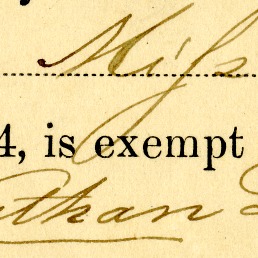 Miss
4, is exempt
athan